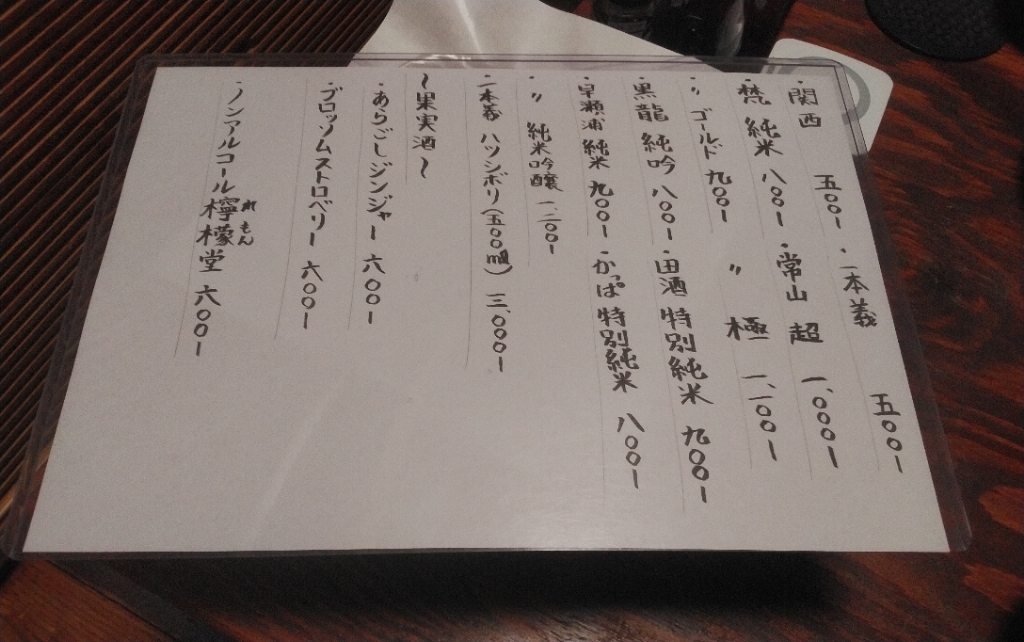 ・関西 五〇〇ー
・一本義 五〇〇ー
・梵 純米 八〇〇ー
・常山 超 一、〇〇〇ー
・〃 ゴールド 九〇〇ー
〃 極 一、一〇〇ー
・黒龍 純吟 八〇〇ー
・田酒 特別純米 九〇〇ー
・早瀬浦 純米 九〇〇ー
・かっぱ 特別純米 八〇〇ー
・〃 純米吟醸 一、二〇〇ー
・一本義 ハツシボリ(五〇〇ml) 三、〇〇〇ー
〜果実酒〜
・あらごしジンジャー 六〇〇ー
・ブロッソムストロベリー 六〇〇ー
・ノンアルコール檸檬堂 六〇〇ー
れもん